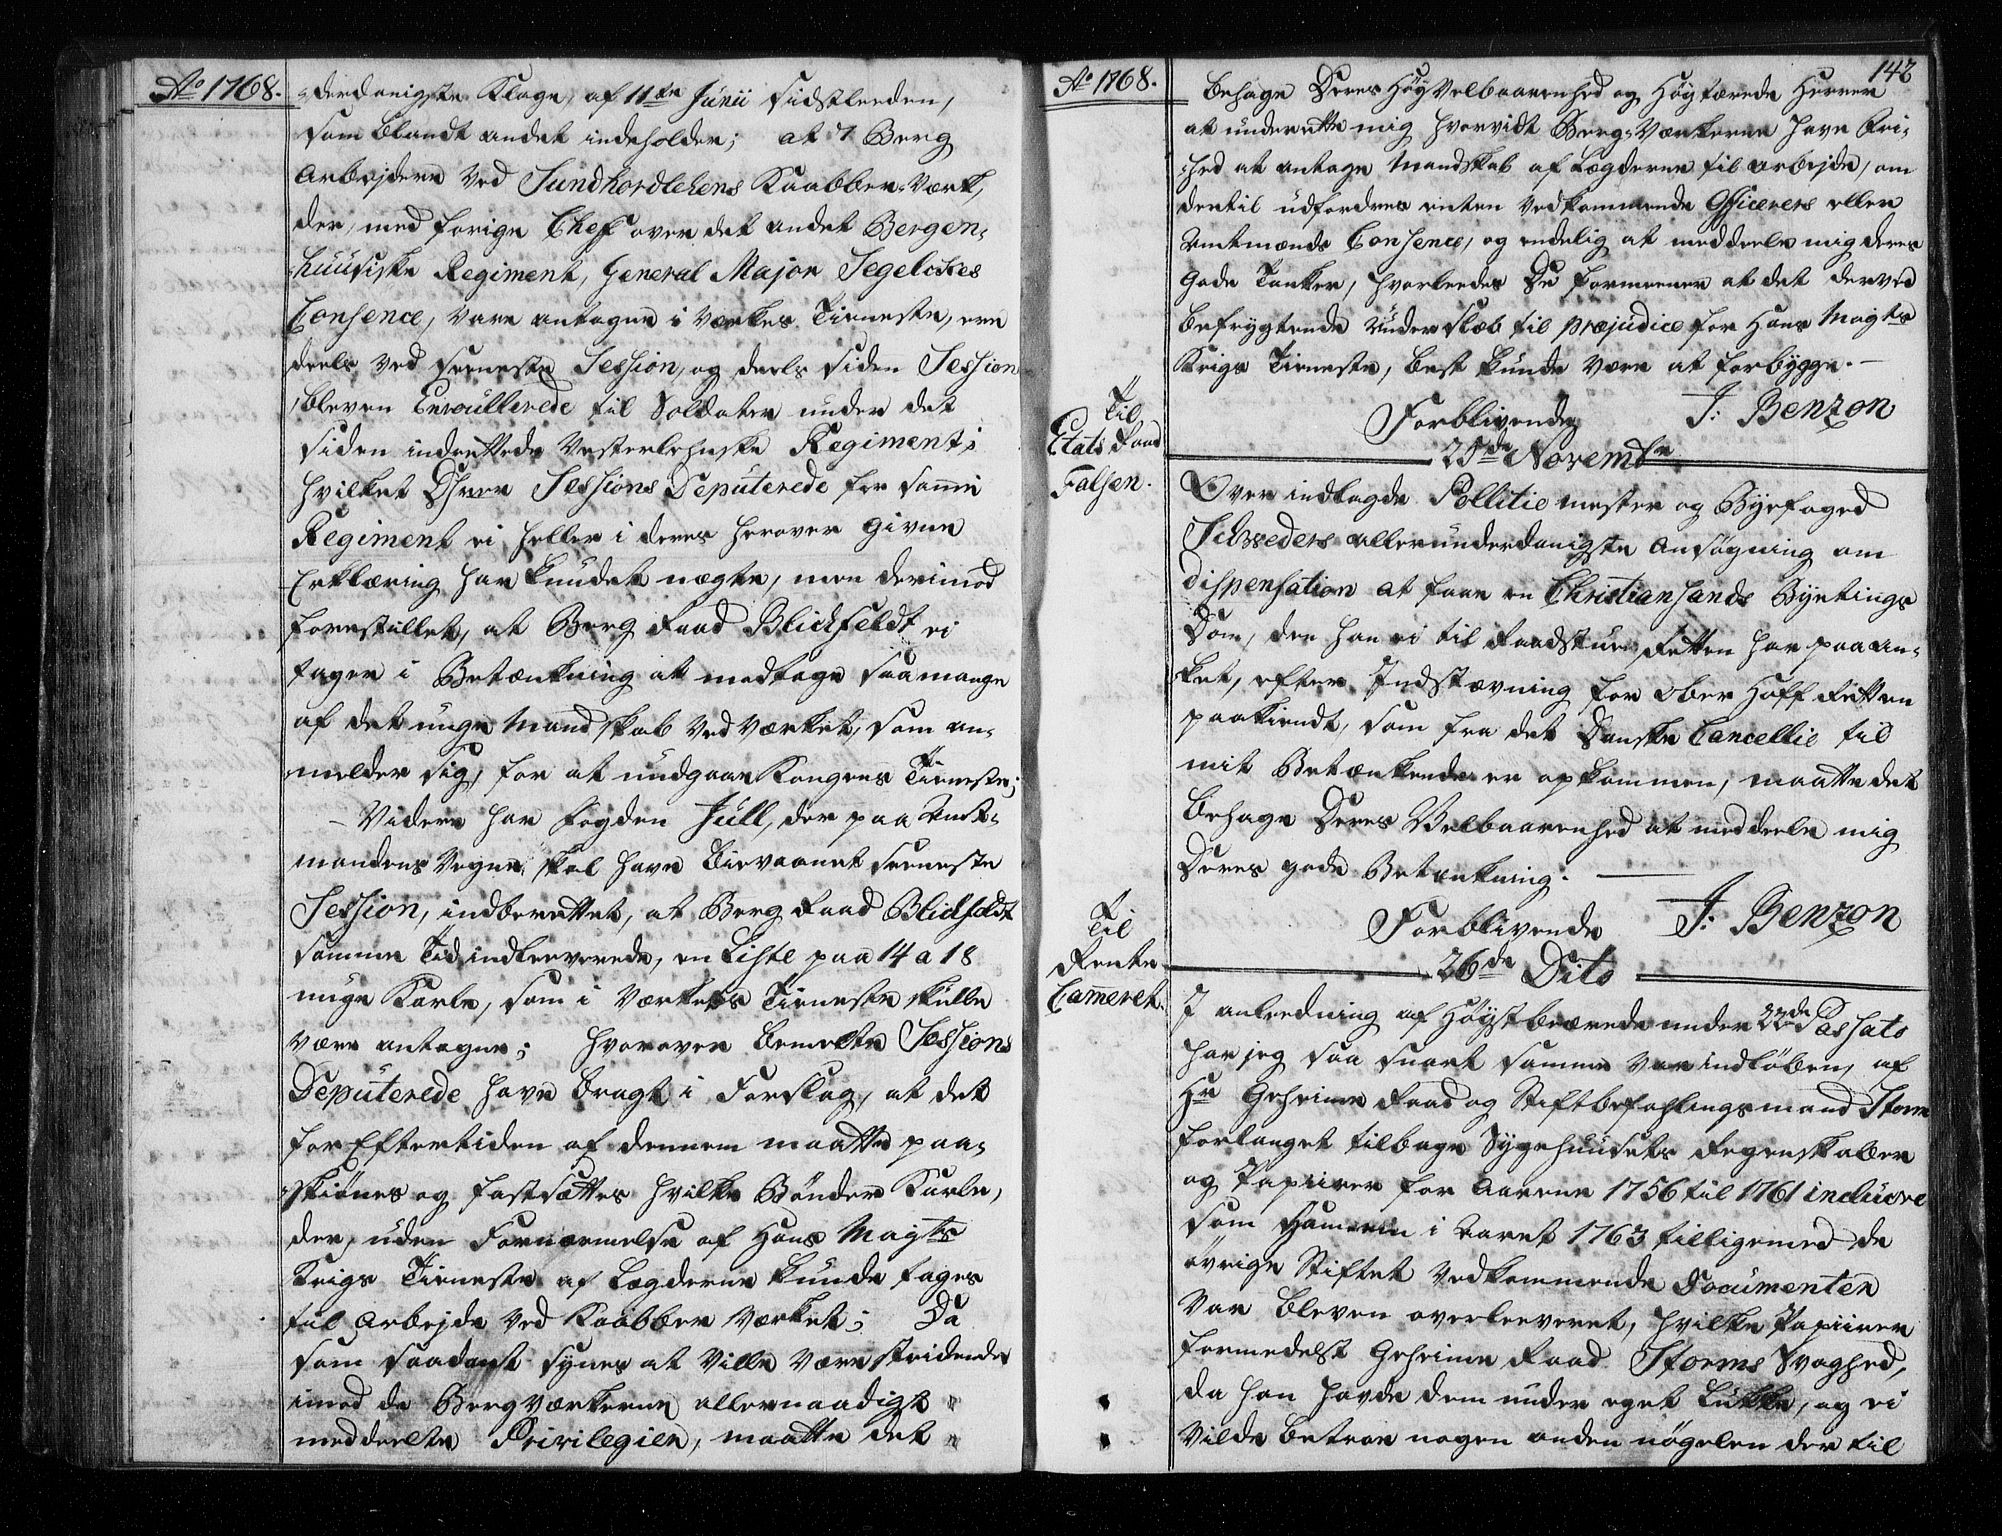 Ao 1768.
-derdanigste Klage, af 11te Junii sidstleeden,
som blandt andet indeholder; at 7 Berg
Arbejdere ved Sundhordlehens Kaabber-Værk,
der, med forige Chef over det andet Bergen-
-huusiske Regiment, General Major Segelckes
Consence, vare antagne i Værkes Tieneste, ere
deels ved seeneste Session, og deels siden Session
bleven Enroullerede til Soldater under det
siden indrettede Vesterlehnske Regiment;
hvilket Sessions Deputerede for samme
Regiment ei heller i deres herover givne
Erklæring har kundet nægte, men derimod
forestillet, at Berg Raad Blichfeldt ei
tager i Betænkning at medtage saa mange
af det unge Mandskab ved Værket, som an-
melder sig, for at undgaae Kongens Tieneste;
- Videre har Fogden Jull, der paa Amt-
mandens Vegne skal have bievaanet seeneste
Session, indberettet, at Berg Raad Blichfeldt
samme Tid indleverede, en Liste paa 14 a 18
unge Karle, som i Værkets Tieneste skulle
være antagne; hvorover bemelte Sessions
Deputerede have bragt i Forslag, at det
for Eftertiden af dennem maatte paa-
skiønes og fastsættes hvilke Bønder Karle,
der, uden Fornærmelse af Hans Mayts
Krigs Tieneste af Lægderne kunde tages
til Arbejde ved Kaabber Værket; Da
som saadant synes at ville være stridende
imod de Bergværkerne allernaadigst
meddeelte Privilegien, maatte det
Ao 1768.
142
Behage Deres HøyVelbaarenhed og Høylærde Herrer
at underrette mig hvorvidt Berg-Værkerne have Fri-
-hed at antage Mandskab af Lægderne til Arbejde, om
dertil udfordres enten vedkommende Officerers eller
Amtmænds Consence, og endelig at meddeele mig deres
gode Tanker, hvorleedes De formeener at det derved
befrygtende Underslæb til præjudice for Hans Mayts
Krigs Tieneste, best kunde være at forbygge. -
Forblivende J: Benzon
25de Novembr
Til
Etats Raad
Falsen.
Over indlagde Pollitie mester og Byefoged
allerunderdanigste Ansøgning om
dispensation at faae en Christiansands Byetings
Dom, den han ei til Raadstue Retten har paaan-
ket, efter Indstævning for Ober Hoff Retten
paakiendt, som fra det Danske Cancellie til
mit Betænkende er opkommen, maatte det
behage Deres Velbaarenhed at meddeele mig
Deres gode Betænkning. -
Forblivende J: Benzon
26de Dito
Til
Rente
Cameret.
I anleedning af Høystbeærede under 22de Passato
har jeg saa snart samme var indløben, af
Hr Geheime Raad og Stiftbefahlingsmand Storm
forlanget tilbage Sygehuusets Regenskaber
og Papiirer for Aarene 1756 til 1761 inclusive
som ham i Aaret 1763 tilligemed de
øvrige Stiftet vedkommende Documenter
var bleven overleeveret, hvilke Papiirer
formedelst Geheime Raad Storms Svaghed,
da han havde dem under eget Lukke, og ei
vilde betroe nogen anden nøgelen der til